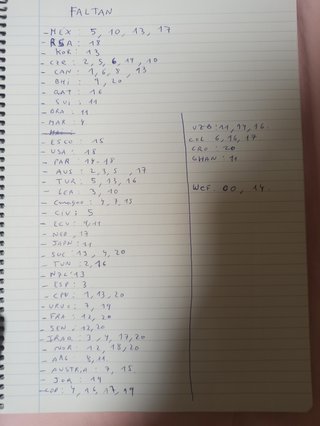 FALTAN
- MEX : 5, 10, 13, 17
- RSA : 18
- KOR : 13
- CZE : 2, 5, 6, 17, 20
- CAN : 1, 6, 8, 13
- BHI : 9, 20
- QAT : 16
- SUI : 11
- BRA : 11
- MAR : 4
- ESCO : 15
- USA : 18
- PAR : 17-18
- AUS : 2, 3, 5, 17
- TUR : 5, 13, 16
- 3, 10
- Curaçao : 4, 7, 13
- CIV : 5
- ECU : 4, 11
- NED , 17
- JAPN : 11
- SUE : 13, 4, 20
- TUN : 2, 16
- NZL : 13
- ESP : 3
- CPV : 1, 13, 20
- URUG : 7, 19
- FRA : 12, 20
- SEN : 12, 20
- IRAQ : 3, 4, 17, 20
- NOR : 12, 18, 20
- ARG : 8, 11
- AUSTRIA : 7, 15
- JOR : 19
- COP : 4, 15, 17, 19
UZB : 11, 14, 16
COL 6, 16, 17
CRO : 20
GHAN : 11
WCF : 00, 14